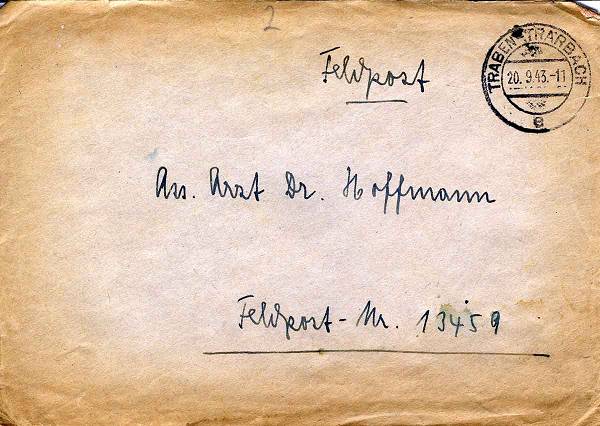 2
Feldpost
TRABEN-TRARBACH
20.9.43.-11
a
Ass. Arzt Dr. Hoffmann
Feldpost-Nr. 13459